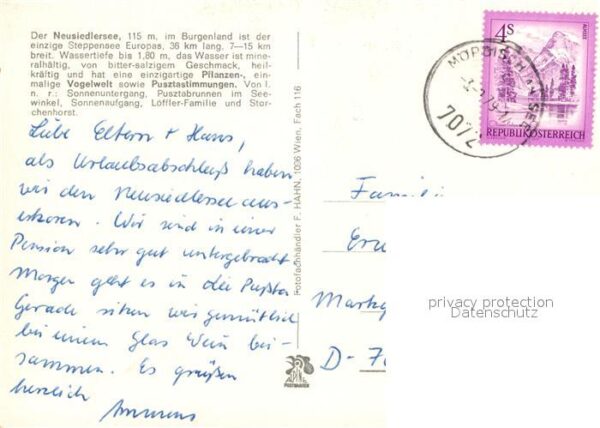 Der Neusiedlersee, 115 m, im Burgenland ist der
einzige Steppensee Europas, 36 km lang, 7—15 km
breit. Wassertiefe bis 1,80 m, das Wasser ist mine-
ralhältig, von bitter-salzigem Geschmack, heil-
kräftig und hat eine einzigartige Pflanzen-, ein-
malige Vogelwelt sowie Pusztastimmungen. Von l.
n. r.: Sonnenuntergang, Pusztabrunnen im See-
winkel, Sonnenaufgang, Löffler-Familie und Stor-
chenhorst.
Liebe Eltern + Hans,
als Urlaubsabschluß haben
wir den Neusiedlersee aus-
erkoren. Wir sind in einer
Pension sehr gut untergebracht
Morgen geht es in die Pußta
Gerade sitzen wir gemütlich
bei einem Glas Wein bei-
sammen. Es grüßen
herzlich
Fotofachhändler F. HAHN, 1036 Wien, Fach 116
POSTKARTEN
4S
ALMSEE
REPUBLIK ÖSTERREICH
MÖRBISCH AM SEE
7072
Famili
Markg
D-7
privacy protection
Datenschutz